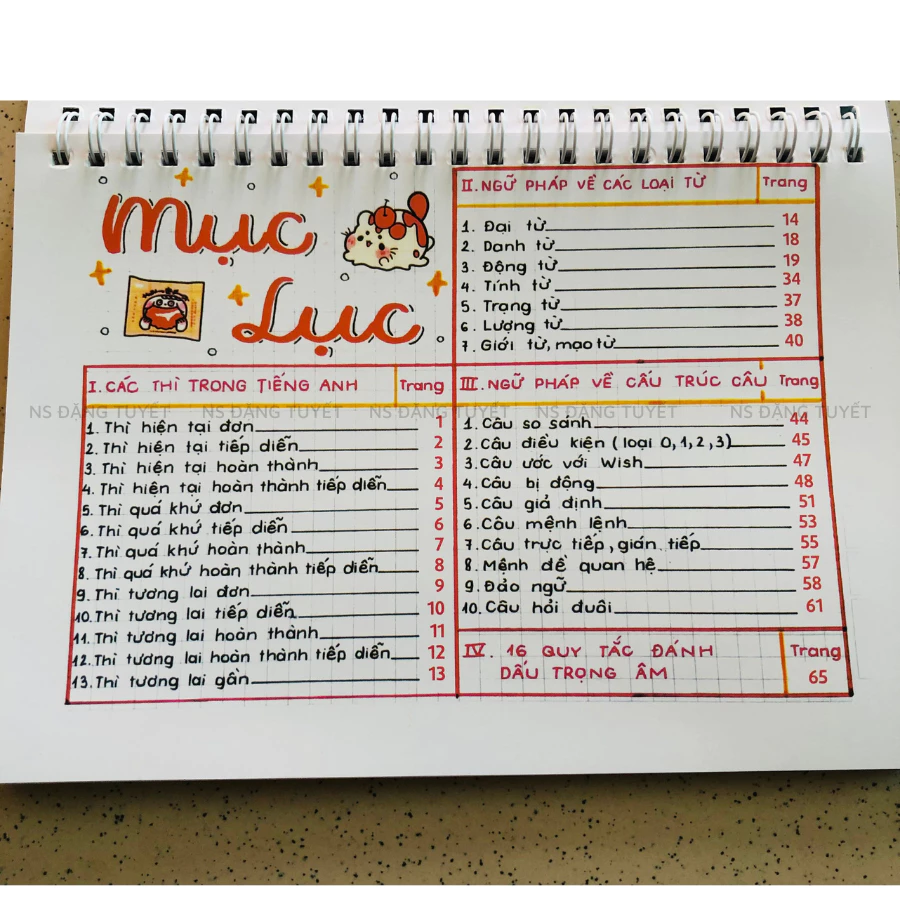 Mục
Lục
I. CÁC THÌ TRONG TIẾNG ANH Trang
1. Thì hiện tại đơn 1
2. Thì hiện tại tiếp diễn 2
3. Thì hiện tại hoàn thành 3
4. Thì hiện tại hoàn thành tiếp diễn 4
5. Thì quá khứ đơn 5
6. Thì quá khứ tiếp diễn 6
7. Thì quá khứ hoàn thành 7
8. Thì quá khứ hoàn thành tiếp diễn 8
9. Thì tương lai đơn 9
10. Thì tương lai tiếp diễn 10
11. Thì tương lai hoàn thành 11
12. Thì tương lai hoàn thành tiếp diễn 12
13. Thì tương lai gần 13
II. NGỮ PHÁP VỀ CÁC LOẠI TỪ Trang
1. Đại từ 14
2. Danh từ 18
3. Động từ 19
4. Tính từ 34
5. Trạng từ 37
6. Lượng từ 38
7. Giới từ, mạo từ 40
III. NGỮ PHÁP VỀ CẤU TRÚC CÂU Trang
1. Câu so sánh 44
2. Câu điều kiện (loại 0, 1, 2, 3) 45
3. Câu ước với Wish 47
4. Câu bị động 48
5. Câu giả định 51
6. Câu mệnh lệnh 53
7. Câu trực tiếp, gián tiếp 55
8. Mệnh đề quan hệ 57
9. Đảo ngữ 58
10. Câu hỏi đuôi 61
IV. 16 QUY TẮC ĐÁNH Trang
DẤU TRỌNG ÂM 65
NS ĐẶNG TUYẾT NS ĐẶNG TUYẾT NS ĐẶNG TUYẾT NS ĐẶNG TUYẾT NS ĐẶNG TUYẾT